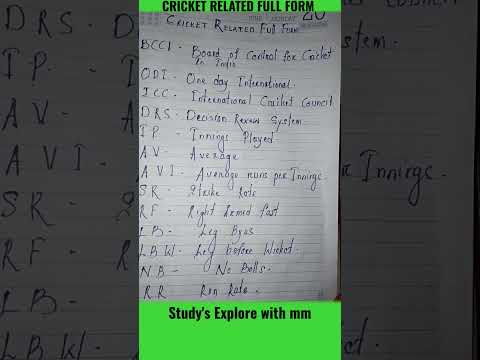 CRICKET RELATED FULL FORM
CRICKET RELATED FULL FORM
BCCI - Board of Control for Cricket
in India
ODI - One day International.
ICC - International Cricket Council
DRS - Decision Review System
IP - Innings Played
AV - Average
AVI - Average runs per Innings.
SR - Strike Rate
RF - Right Armed fast
LB - Leg Byes
LBW - Leg before Wicket.
NB - No Balls.
RR - Run Rate.
Study's Explore with mm
DRS - D
IP -
AV - A
AVI -
SR -
RF -
LB -
LBW -
stem.
Innings.